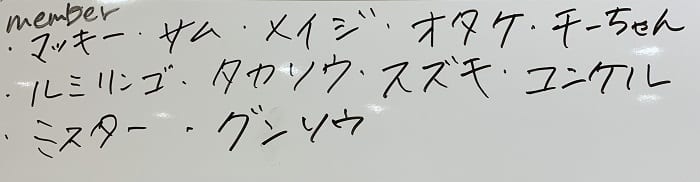 member
・マッキー・サム・メイジ・オタケ・チーちゃん
・ルミリンゴ・タカソウ・スズキ・ユンケル
・ミスター・グンソウ